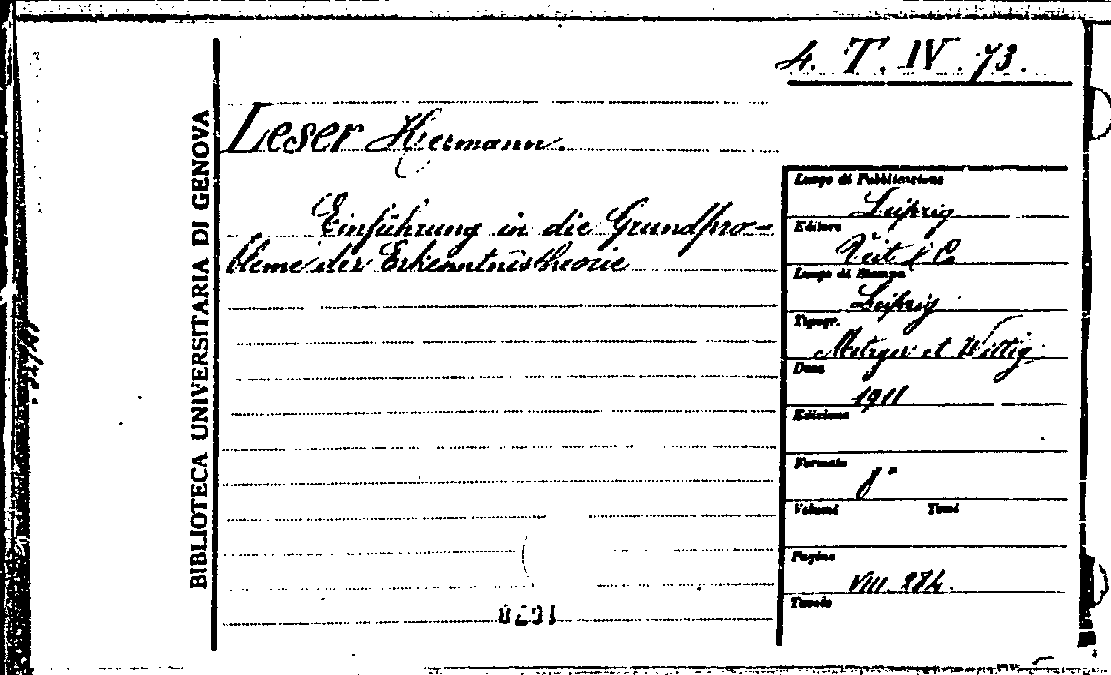 4. T. IV. 73.
BIBLIOTECA UNIVERSITARIA DI GENOVA
Leser Hermann.
Einführung in die Grundpro=
bleme der Erkenntnistheorie
Luogo di Pubblicazione
Leipzig
Editore
Veit & C.
Luogo di Stampa
Leipzig
Tipogr.
Metzger et Wittig
Data
1911
Edizione
Formato
8°
Volumi Tomi
Pagine
VIII. 284.
Tavole